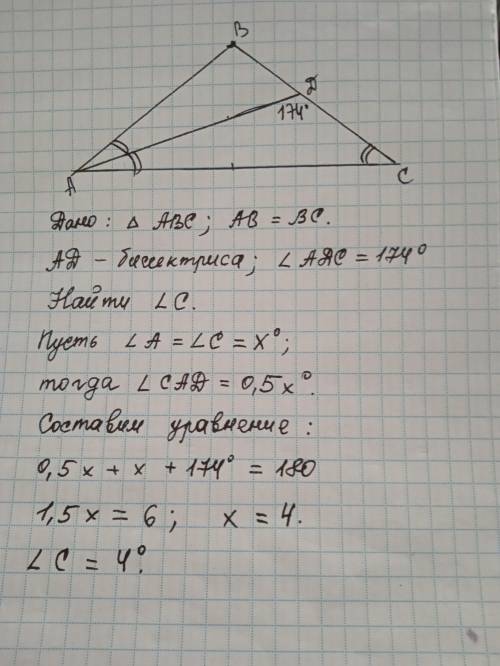 B
Д
174°
A
C
Дано: △ ABC; AB = BC.
АД – биссектриса; ∠ АДС = 174°
Найти ∠C.
Пусть ∠A = ∠C = x°;
тогда ∠CAД = 0,5x°.
Составим уравнение:
0,5x + x + 174° = 180
1,5x = 6; x = 4.
∠C = 4°.